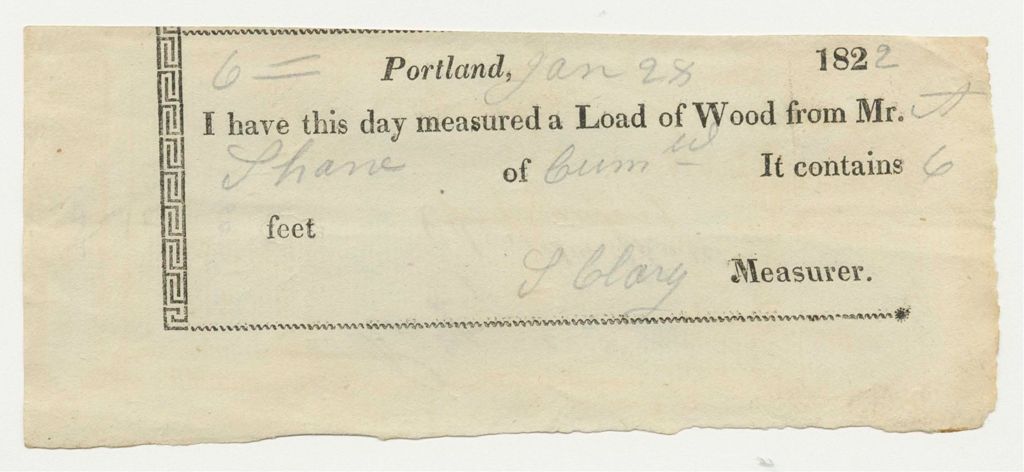 6 = Portland, Jan 28 1822
I have this day measured a Load of Wood from Mr. A
Shaw of Cum ld It contains 6
feet
S Clary Measurer.